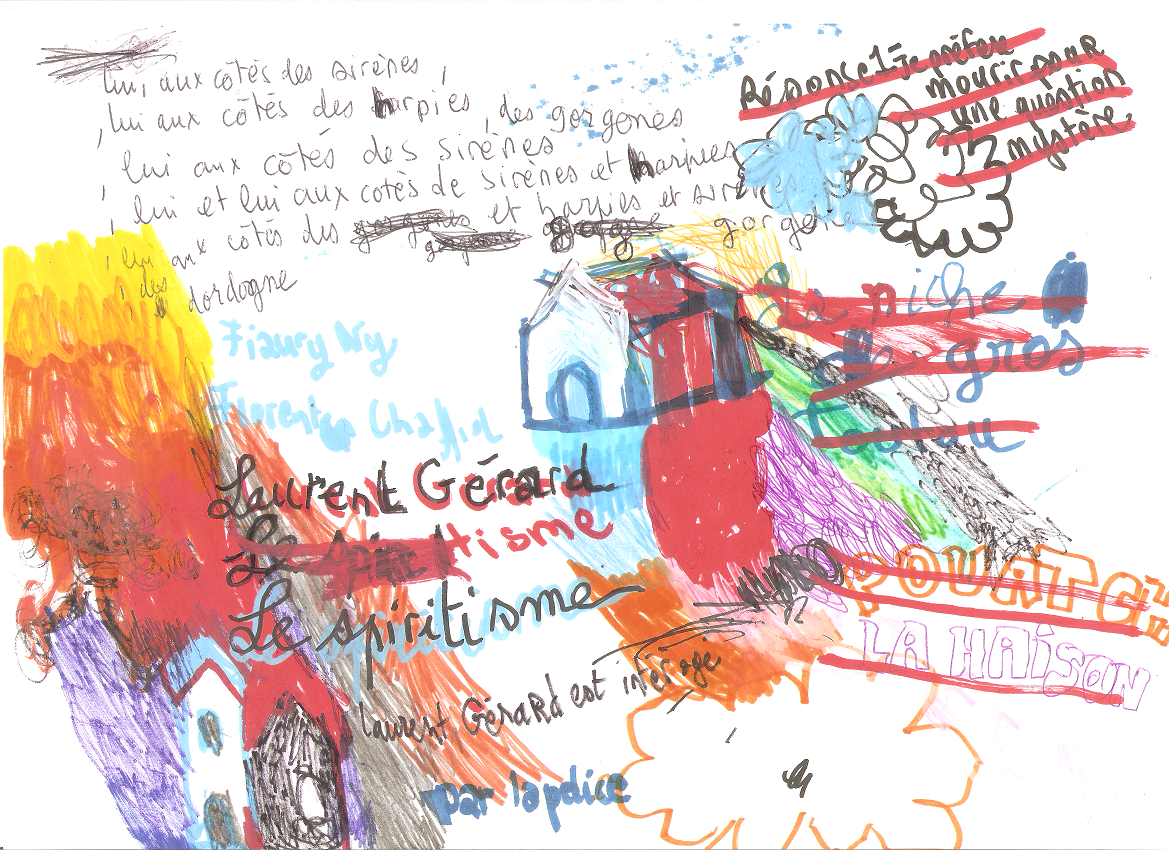 lui, aux côtés des sirènes,
, lui aux côtés des harpies, des gorgones
, lui aux côtés des sirènes
, lui et lui aux cotés de sirènes et harpies
, lui aux côtés des et harpies et sirè gorgen
, des dordogne
Réponse 1 - Je préfère
mourir pour
une question
mystère.
La niche
de gros
toutou
Fiaury Ny
Florentin
Laurent Gérard
Le spiritisme
Le spiritisme
POUATCH
LA MAISON
Laurent Gérard est intérogé
par la police